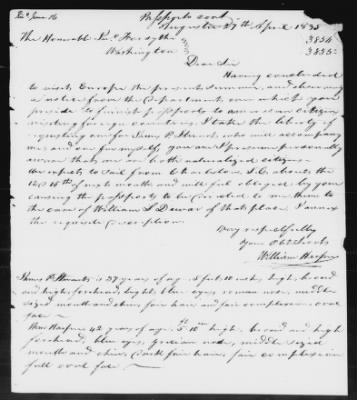 Passports sent
Augusta 27th April 1835
The Honorable Jno. Forsyth
3834
3835
Washington
Dear Sir
Having concluded
to visit Europe the present summer, and observing
a notice from the Department over which you
preside to furnish passports to American Citizens
visiting foreign countries, I take the liberty of
requesting one for James P. Stuart, who will accompany
me and one for myself, you are I presume personally
aware that we are both naturalized citizens
We expect to sail from Charleston S.C. about the
12 @ 15th of next month and will feel obliged by your
causing the passports to be forwarded to me there to
the care of William S. Dewar of that place. I annex
the requisite description.
Very respectfully
Your Obt. Servt.
William Harper
James P. Stuart is 37 years of age, 5 feet 10 inches high, broad
and high forehead, light blue eyes, roman nose, middle
sized mouth and chin, fair hair and fair complexion, oval
face
Wm. Harper 42 years of age, 5 10 high, broad and high
forehead, blue eyes, grecian nose, middle sized
mouth and chin, dark fair hair, fair complexion
full oval face